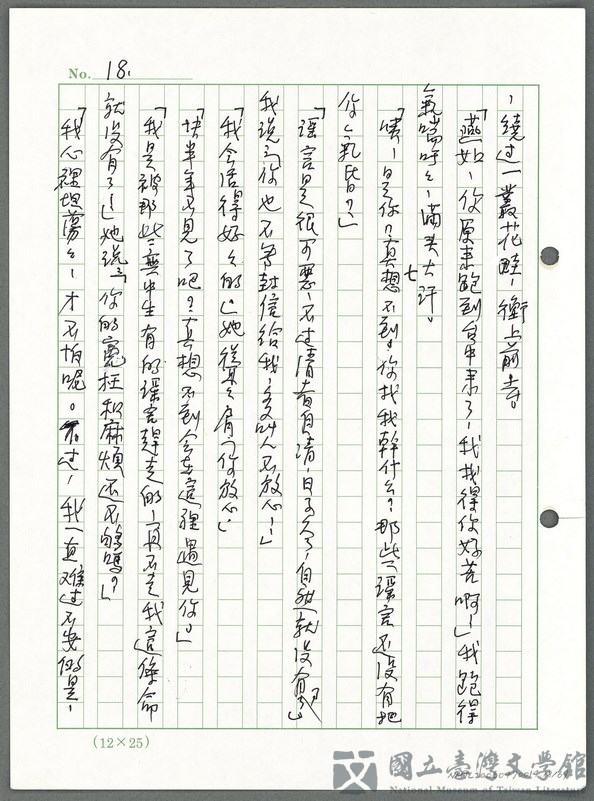 No. 18.
，繞过一叢花畦，衝上前去。
「燕如，你原来跑到台中来了，我找得你好苦啊！」我跑得
氣喘呼々，滿头大汗。
「噢！是你？真想不到，你找我幹什么？那些瑤言还没有把
你气昏？」
「瑤言是很可惡，不过清者自清，日子久了，自然就没有了」
我說：「你也不寄封信給我，多叫人不放心！」
「我会活得好々的」她聳々肩「你放心」
「快半年不見了吧？真想不到会在這裡遇見你」
「我是被那些無中生有的瑤言趕走的，再不走我這條命
就没有了！」她說：「你的冤枉和麻煩还不夠嗎？」
「我心裡坦蕩々，才不怕呢。不过，我一直难过不安的是，
(12×25)
國立臺灣文學館
National Museum of Taiwan Literature